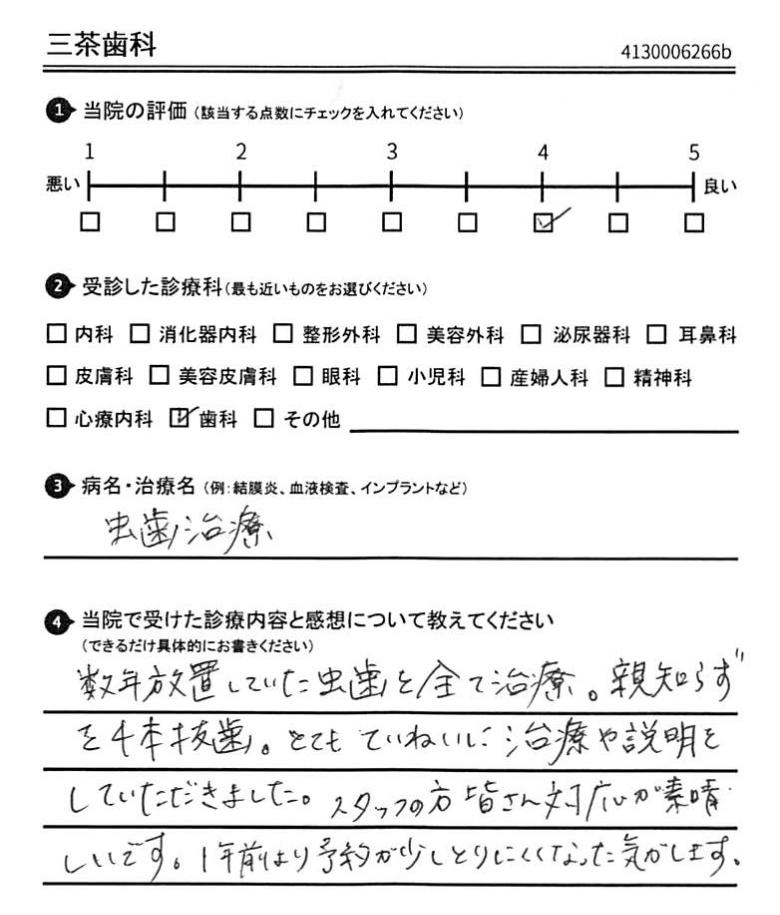 三茶歯科
4130006266b
1 当院の評価（該当する点数にチェックを入れてください）
1 2 3 4 5
悪い 良い
2 受診した診療科（最も近いものをお選びください）
内科 消化器内科 整形外科 美容外科 泌尿器科 耳鼻科
皮膚科 美容皮膚科 眼科 小児科 産婦人科 精神科
心療内科 歯科 その他
3 病名・治療名（例：結膜炎、血液検査、インプラントなど）
虫歯治療
4 当院で受けた診療内容と感想について教えてください
（できるだけ具体的にお書きください）
数年放置していた虫歯を全て治療。親知らず
を4本抜歯。とてもていねいに治療や説明を
していただきました。スタッフの方皆さん対応が素晴
しいです。1年前より予約が少しとりにくくなった気がします。